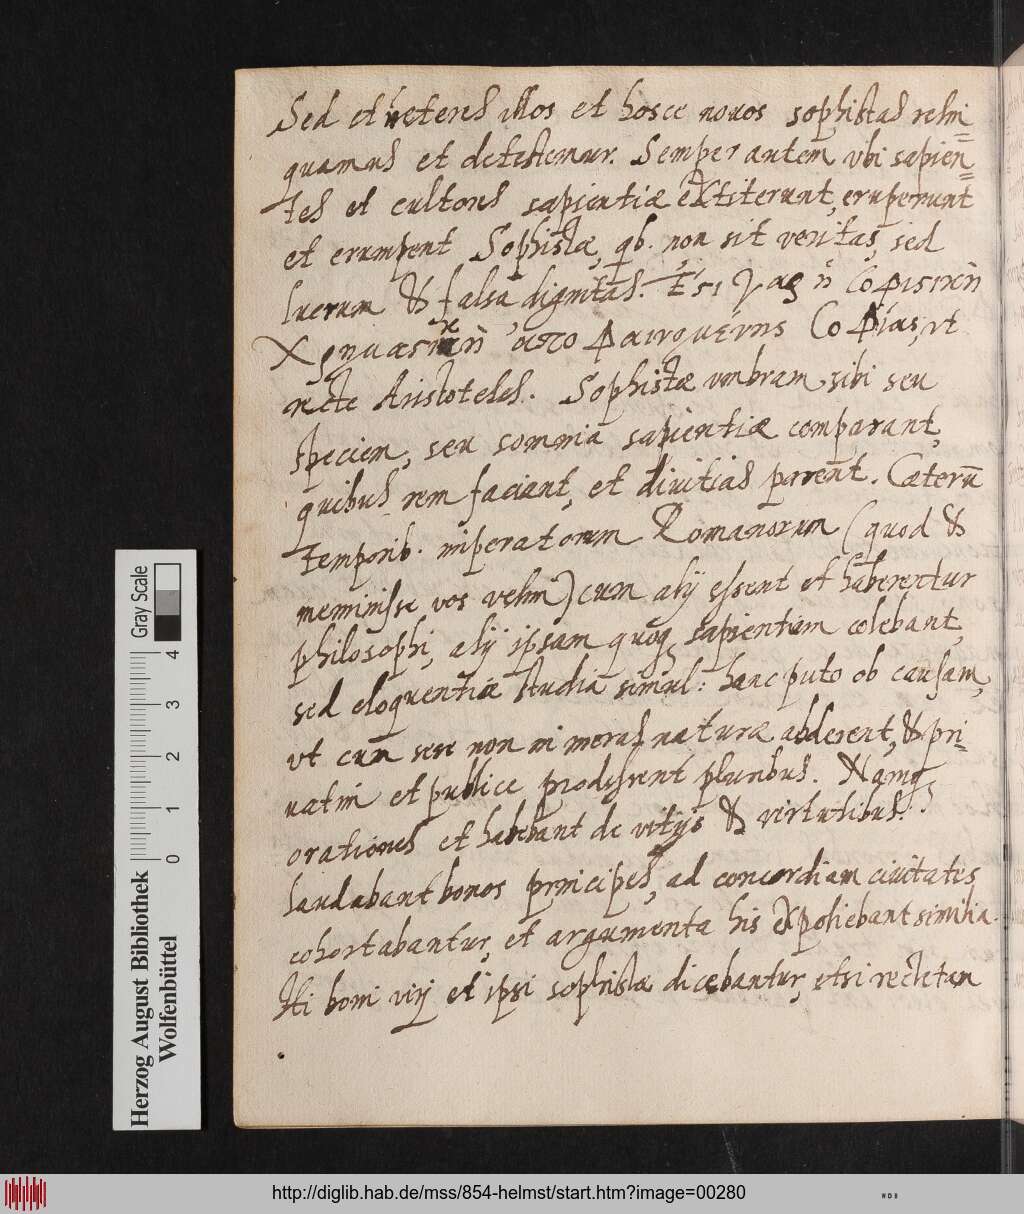 Sed et veteres illos et hosce nouos sophistas relin=
quamus et detestemur. Semper autem vbi sapien=
tes et cultores sapientiæ extiterunt, eruperunt
et erumpent Sophistæ, qb. non sit veritas, sed
lucrum & falsa dignitas. Ἐςι γὰρ ἡ σοφιστικὴ
χρηματιστικὴ ἀπο φαινομένης σοφίας, vt
recte Aristoteles. Sophistæ vmbram sibi seu
speciem, seu somnia sapientiæ comparant,
quibus rem faciant, et diuitias parent. Cæterū
temporib. imperatorum Romanorum (quod &
meminisse vos velim) cum alij essent et haberentur
philosophi, alij ipsam quoq sapientiam colebant,
sed eloquentiæ studia simul: hanc puto ob causam,
vt cum sese non in meras naturæ abderent, & pri=
uatim et publice prodessent pluribus. Namq
orationes et habebant de vitijs & virtutibus.
laudabant bonos principes, ad concordiam ciuitates
cohortabantur, et argumenta his expoliebant similia.
Hi boni virj et ipsi sophistæ dicebantur, etsi recte tan
Gray Scale
4
3
2
1
0
Herzog August Bibliothek
Wolfenbüttel
http://diglib.hab.de/mss/854-helmst/start.htm?image=00280